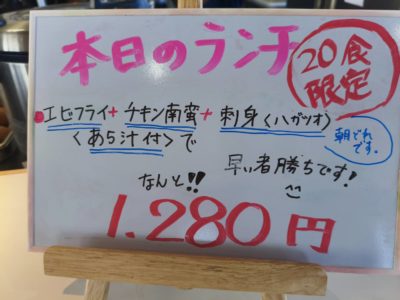 本日のランチ
20食
限定
エビフライ+チキン南蛮+刺身〈ハガツオ〉
〈あら汁付〉で
朝どれ
です。
早い者勝ちです!
なんと!!
1,280円